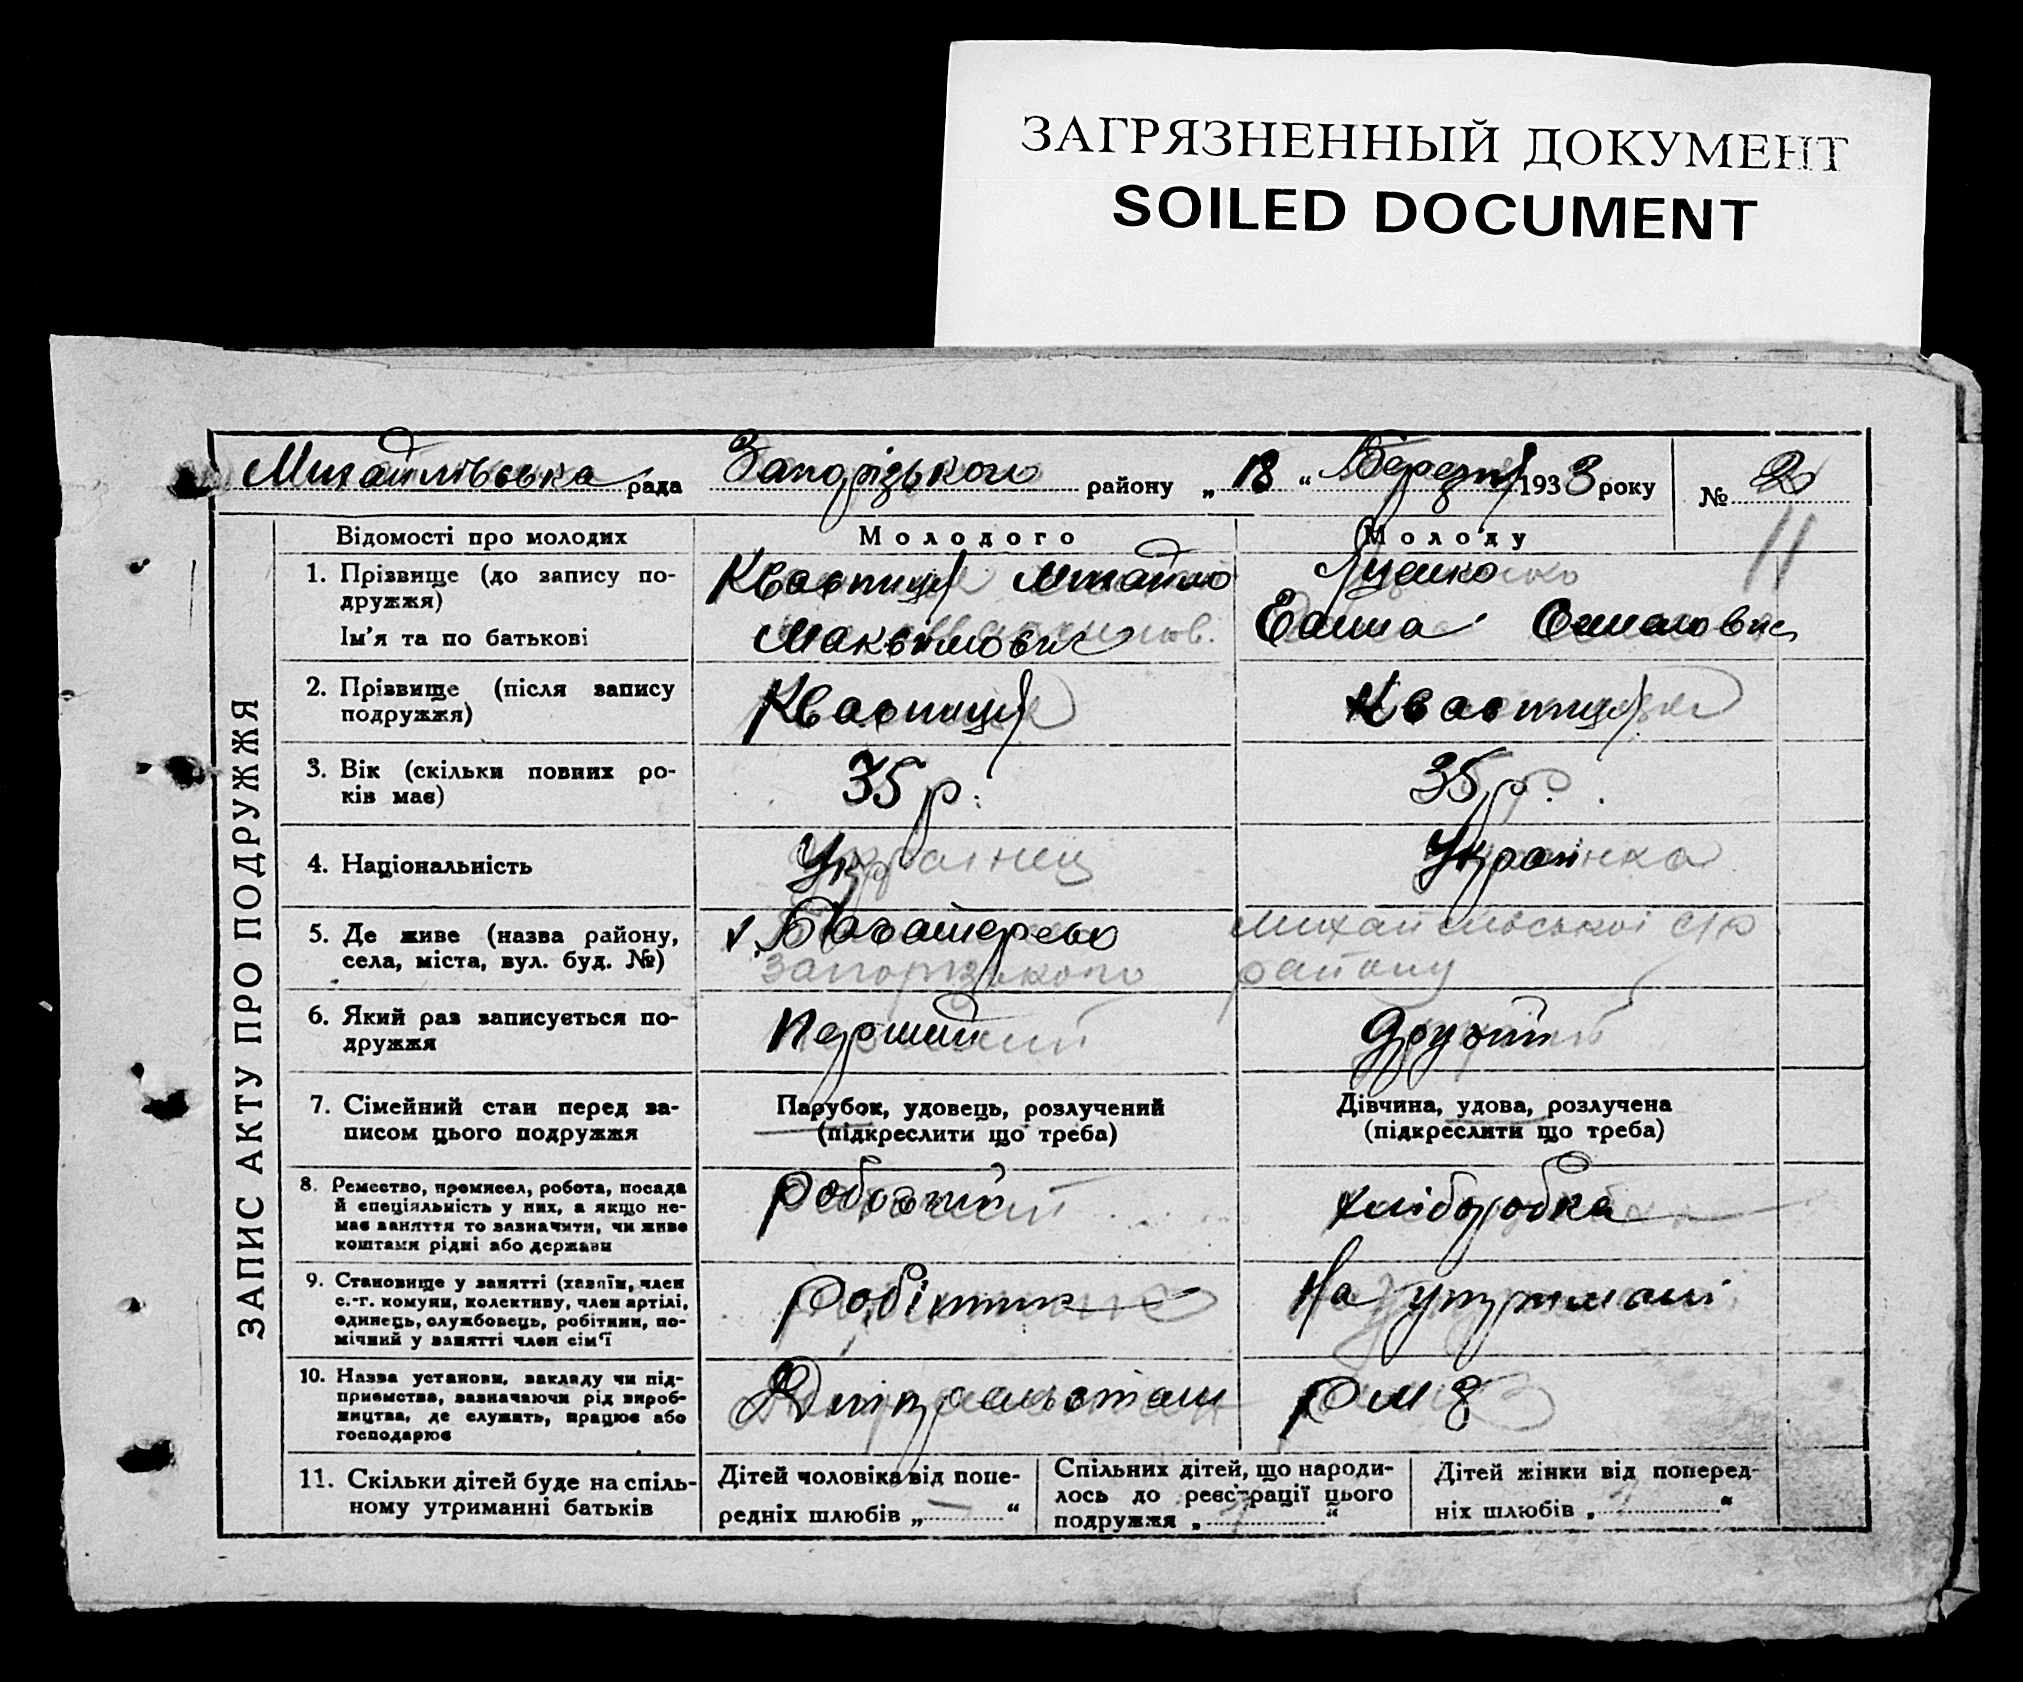 ЗАГРЯЗНЕННЫЙ ДОКУМЕНТ
SOILED DOCUMENT
Михайлівська рада Запорізького району „ 18 “ Березня 1933 року № 2
11
ЗАПИС АКТУ ПРО ПОДРУЖЖЯ
Відомості про молодих Молодого Молоду
1. Прізвище (до запису по-
дружжя)
Ім'я та по батькові
Квасниця Михайло
Максимович
Луценко
2. Прізвище (після запису
подружжя)
Квасниця
Квасниця
3. Вік (скільки повних ро-
ків має)
35 р.
35 р.
4. Національність
Українець
Українка
5. Де живе (назва району,
села, міста, вул. буд. №)
Михайлівської с/р
Запорізького району
6. Який раз записується по-
дружжя
Перший
Другий
7. Сімейний стан перед за-
писом цього подружжя
Парубок, удовець, розлучений
(підкреслити що треба)
Дівчина, удова, розлучена
(підкреслити що треба)
8. Ремество, промисел, робота, посада
й спеціяльність у них, а якщо не-
має заняття то зазначити, чи живе
коштами рідні або держави
робочий
хліборобка
9. Становище у занятті (хазяїн, член
с.-г. комуни, колективу, член артілі,
одинець, службовець, робітник, по-
мічний у занятті член сім'ї
робітник
На утриманні
10. Назва установи, закладу чи під-
приємства, зазначаючи рід вироб-
ництва, де служить, працює або
господарює
Дніпральстан
11. Скільки дітей буде на спіль-
ному утриманні батьків
Дітей чоловіка від попе-
редніх шлюбів „ — “
Спільних дітей, що народи-
лось до реєстрації цього
подружжя „ “
Дітей жінки від поперед-
ніх шлюбів „ “